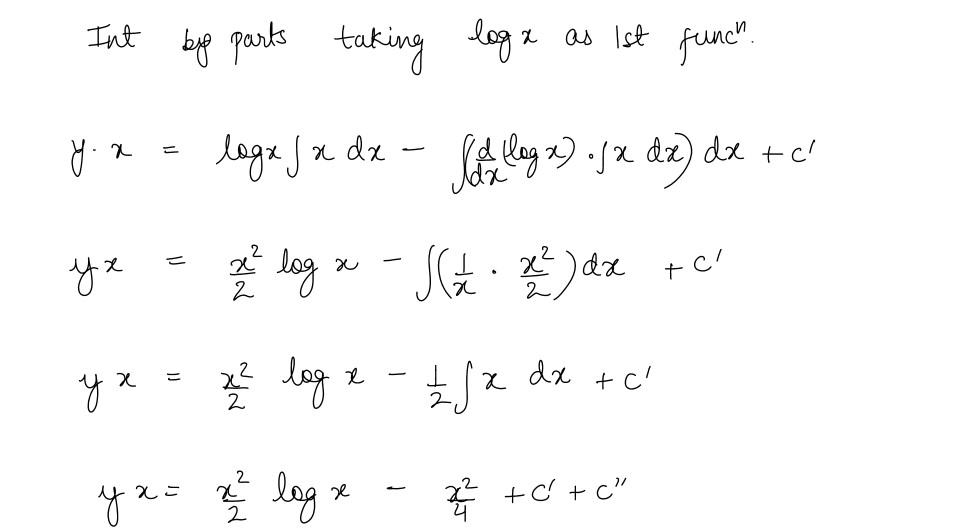 Int by parts taking log x as 1st funcⁿ.
y · x = log x ∫ x dx − ∫(d/dx (log x) · ∫ x dx) dx + c'
yx = x²/2 log x − ∫(1/x · x²/2) dx + c'
yx = x²/2 log x − 1/2 ∫ x dx + c'
yx = x²/2 log x − x²/4 + c' + c''